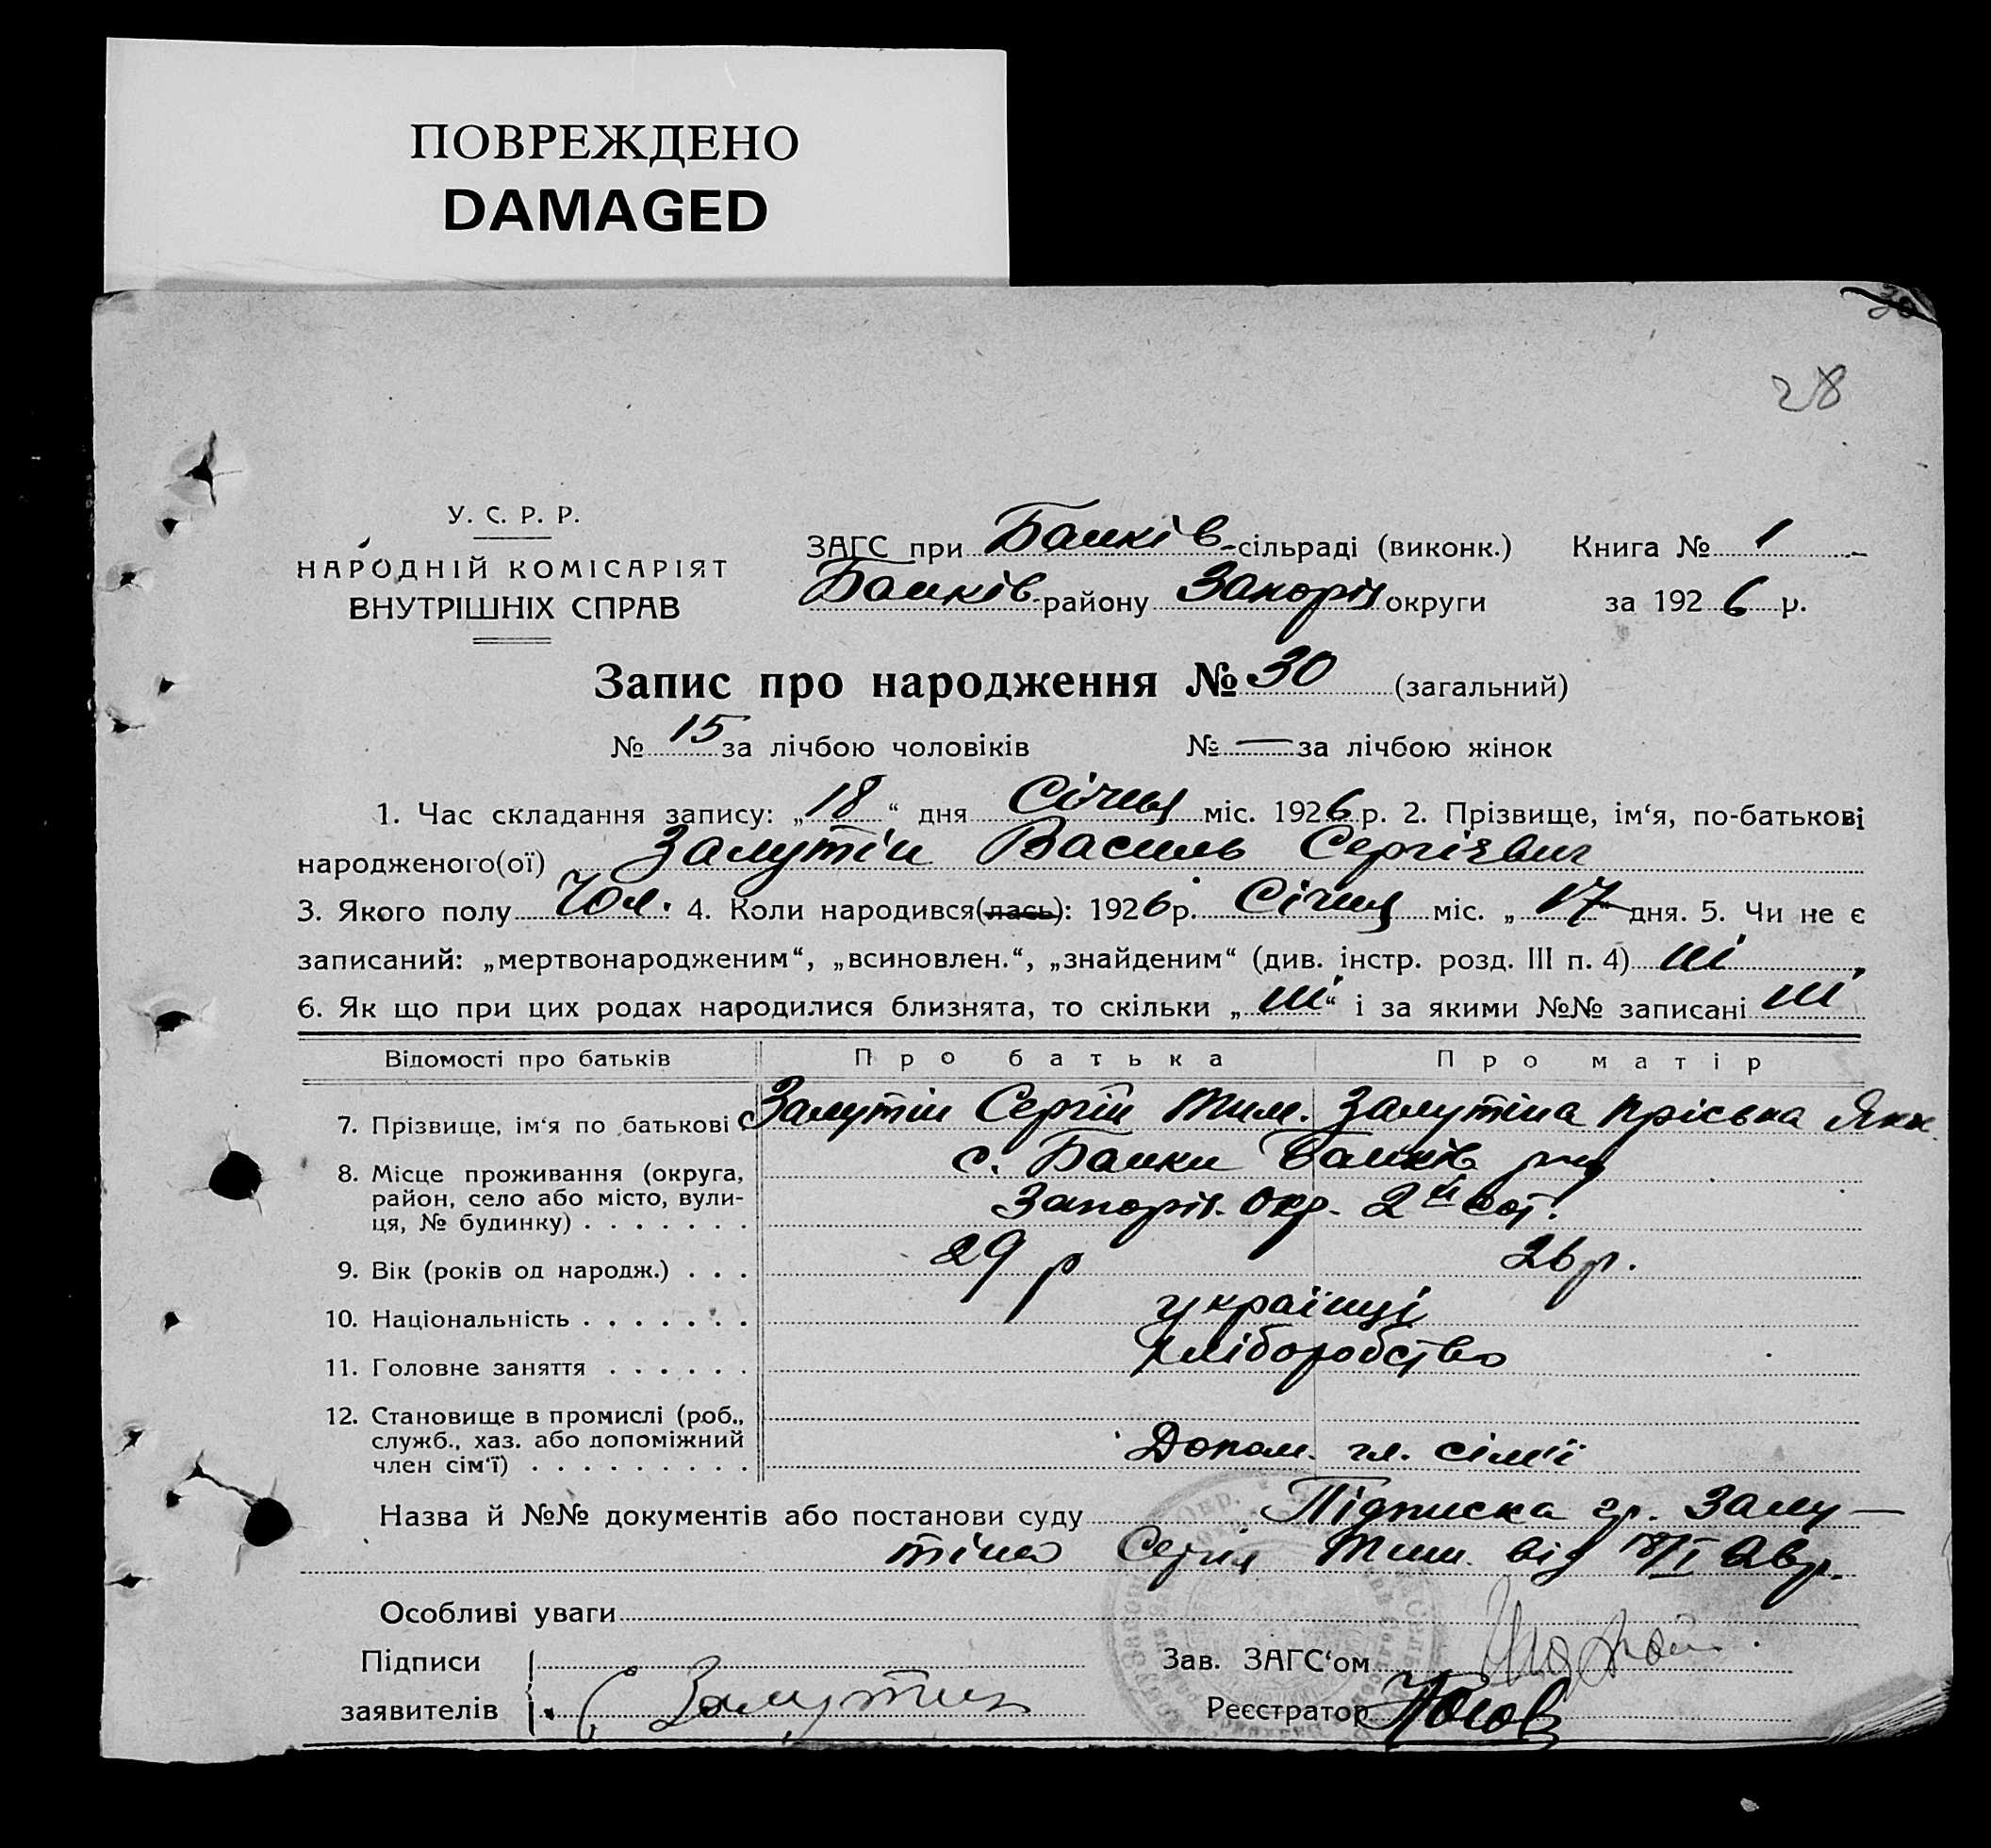 ПОВРЕЖДЕНО
DAMAGED
28
У. С. Р. Р.
НАРОДНІЙ КОМІСАРІЯТ
ВНУТРІШНІХ СПРАВ
ЗАГС при Балків-сільраді (виконк.) Книга № 1
Балків. району Запоріз округи за 1926 р.
Запис про народження № 30 (загальний)
№ 15 за лічбою чоловіків № — за лічбою жінок
1. Час складання запису: „18“ дня Січня міс. 1926 р. 2. Прізвище, ім‘я, по-батькові
народженого(ої) Залутін Василь Сергієвич
3. Якого полу Чол. 4. Коли народився(лась): 1926 р. Січня міс. „17“ дня. 5. Чи не є
записаний: „мертвонародженим“, „всиновлен.“, „знайденим“ (див. інстр. розд. III п. 4) ні
6. Як що при цих родах народилися близнята, то скільки „ні“ і за якими №№ записані ні
Відомості про батьків Про батька Про матір
7. Прізвище, ім‘я по батькові Залутін Сергій Тим. Залутіна Пріська Як.
8. Місце проживання (округа, с. Балки Балків
район, село або місто, вули-
ця, № будинку) . . . . . . . Запоріз. окр. 2й сот.
9. Вік (років од народж.) . . . 29 р 26 р.
10. Національність . . . . . . . українці
11. Головне заняття . . . . . . хліборобство
12. Становище в промислі (роб.,
служб., хаз. або допоміжний
член сім‘ї) . . . . . . . . . Допом. гл. сім'ї
Назва й №№ документів або постанови суду Підписка гр. Залу-
тіна Сергія Тим. від 18/I 26р.
Особливі уваги
Підписи Зав. ЗАГС‘ом
заявителів Залутин Реєстратор Носов